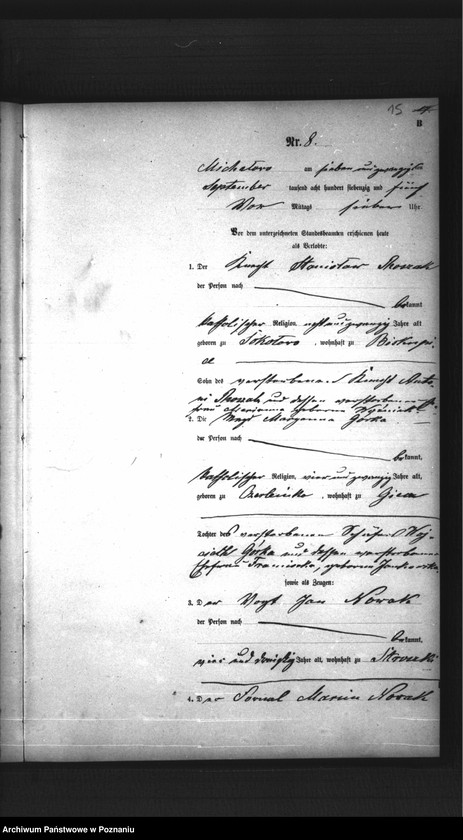 15
B
Nr. 8.
Michalowo am sieben und zwanzigsten
September tausend acht hundert siebenzig und fünf
Vor Mittags sieben Uhr.
Vor dem unterzeichneten Standesbeamten erschienen heute
als Verlobte:
1. Der Knecht Stanislaw
der Person nach
bekannt
katholischer Religion, acht und zwanzig Jahre alt
geboren zu Sokolowo, wohnhaft zu
Sohn des verstorbenen Knecht
und dessen verstorbene
frau Marianna geborene
2. Die Magd Maryanna Górka
der Person nach
bekannt,
katholischer Religion, vier und zwanzig Jahre alt,
geboren zu, wohnhaft zu
Tochter des verstorbenen Schäfer Woj-
ciech Górka und dessen verstorbene
Ehefrau Franciszka, geborene
sowie als Zeugen:
3. Der Vogt Jan Nowak
der Person nach
bekannt,
vier und dreißig Jahre alt, wohnhaft zu
4. Der Fornal Marcin Nowak
Archiwum Państwowe w Poznaniu